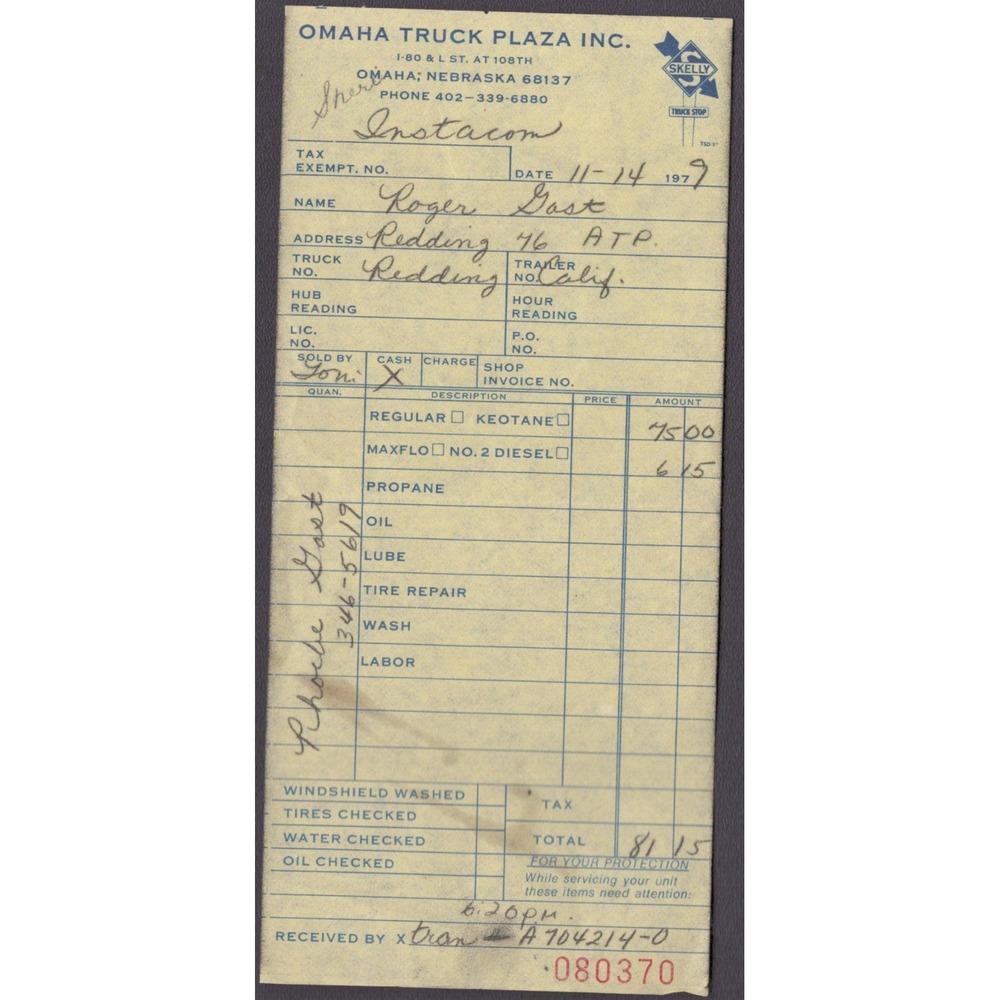 OMAHA TRUCK PLAZA INC.
I-80 & L ST. AT 108TH
OMAHA, NEBRASKA 68137
PHONE 402-339-6880
SKELLY
TRUCK STOP
Instacom
TAX EXEMPT. NO.
DATE 11-14 1979
NAME Roger Gast
ADDRESS Redding 76 ATP.
TRUCK NO. Redding TRAILER NO. Calif.
HUB READING HOUR READING
LIC. NO. P.O. NO.
SOLD BY Toni CASH X CHARGE SHOP INVOICE NO.
QUAN. DESCRIPTION PRICE AMOUNT
REGULAR KEOTANE 75 00
MAXFLO NO. 2 DIESEL 6 15
PROPANE
OIL
LUBE
TIRE REPAIR
WASH
LABOR
Phoebe Gast
346-5619
WINDSHIELD WASHED
TIRES CHECKED
WATER CHECKED
OIL CHECKED
TAX
TOTAL 81 15
FOR YOUR PROTECTION
While servicing your unit
these items need attention:
6:20 pm.
RECEIVED BY X tran # A704214-0
080370